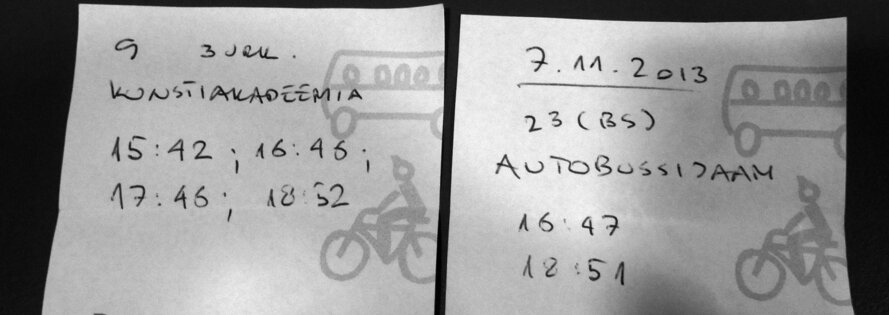 9 3 JRK.
KUNSTIAKADEEMIA
15:42 ; 16:46 ;
17:46 ; 18:52
7.11.2013
23 (BS)
AUTOBUSSIJAAM
16:47
18:51